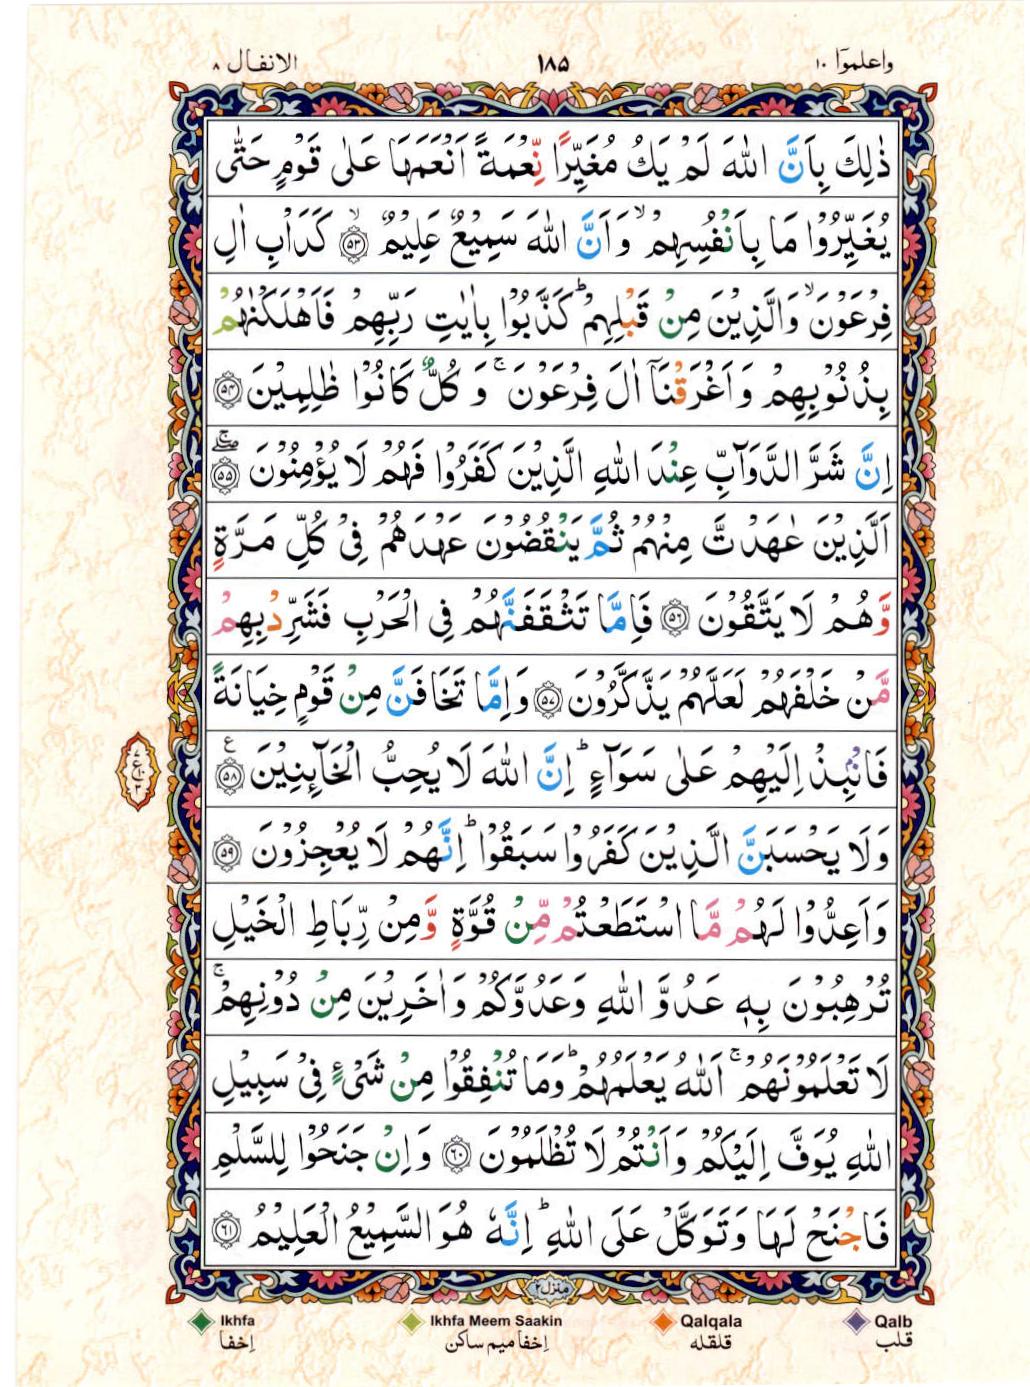 واعلموٓا ۱۰
۱۸۵
الانفال ۸
ذٰلِكَ بِاَنَّ اللّٰهَ لَمْ يَكُ مُغَيِّرًا نِّعْمَةً اَنْعَمَهَا عَلٰى قَوْمٍ حَتّٰى
يُغَيِّرُوْا مَا بِاَنْفُسِهِمْ ۙ وَاَنَّ اللّٰهَ سَمِيْعٌ عَلِيْمٌ ۙ ﴿۵۳﴾ كَدَاْبِ اٰلِ
فِرْعَوْنَ ۙ وَالَّذِيْنَ مِنْ قَبْلِهِمْ ؕ كَذَّبُوْا بِاٰيٰتِ رَبِّهِمْ فَاَهْلَكْنٰهُمْ
بِذُنُوْبِهِمْ وَاَغْرَقْنَآ اٰلَ فِرْعَوْنَ ۚ وَ كُلٌّ كَانُوْا ظٰلِمِيْنَ ﴿۵۴﴾
اِنَّ شَرَّ الدَّوَآبِّ عِنْدَ اللّٰهِ الَّذِيْنَ كَفَرُوْا فَهُمْ لَا يُؤْمِنُوْنَ ۖۚ ﴿۵۵﴾
اَلَّذِيْنَ عٰهَدْتَّ مِنْهُمْ ثُمَّ يَنْقُضُوْنَ عَهْدَهُمْ فِىْ كُلِّ مَرَّةٍ
وَّهُمْ لَا يَتَّقُوْنَ ﴿۵۶﴾ فَاِمَّا تَثْقَفَنَّهُمْ فِى الْحَرْبِ فَشَرِّدْ بِهِمْ
مَّنْ خَلْفَهُمْ لَعَلَّهُمْ يَذَّكَّرُوْنَ ﴿۵۷﴾ وَاِمَّا تَخَافَنَّ مِنْ قَوْمٍ خِيَانَةً
فَانْۢبِذْ اِلَيْهِمْ عَلٰى سَوَآءٍ ؕ اِنَّ اللّٰهَ لَا يُحِبُّ الْخَآئِنِيْنَ ﴿۵۸﴾ ع
وَلَا يَحْسَبَنَّ الَّذِيْنَ كَفَرُوْا سَبَقُوْا ؕ اِنَّهُمْ لَا يُعْجِزُوْنَ ﴿۵۹﴾
وَاَعِدُّوْا لَهُمْ مَّا اسْتَطَعْتُمْ مِّنْ قُوَّةٍ وَّمِنْ رِّبَاطِ الْخَيْلِ
تُرْهِبُوْنَ بِهٖ عَدُوَّ اللّٰهِ وَعَدُوَّكُمْ وَاٰخَرِيْنَ مِنْ دُوْنِهِمْ ۚ
لَا تَعْلَمُوْنَهُمْ ۚ اَللّٰهُ يَعْلَمُهُمْ ؕ وَمَا تُنْفِقُوْا مِنْ شَىْءٍ فِىْ سَبِيْلِ
اللّٰهِ يُوَفَّ اِلَيْكُمْ وَاَنْتُمْ لَا تُظْلَمُوْنَ ﴿۶۰﴾ وَاِنْ جَنَحُوْا لِلسَّلْمِ
فَاجْنَحْ لَهَا وَتَوَكَّلْ عَلَى اللّٰهِ ؕ اِنَّهٗ هُوَ السَّمِيْعُ الْعَلِيْمُ ﴿۶۱﴾
منزل۲
Ikhfa
Ikhfa Meem Saakin
Qalqala
Qalb
اِخفا
اِخفا میم ساکن
قلقله
قلب